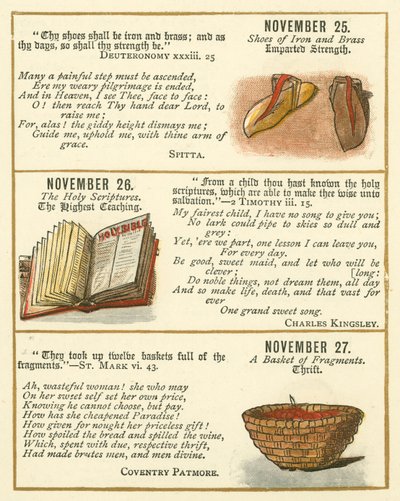 "Thy shoes shall be iron and brass; and as
thy days, so shall thy strength be."
DEUTERONOMY xxxiii. 25
Many a painful step must be ascended,
Ere my weary pilgrimage is ended,
And in Heaven, I see Thee, face to face:
O! then reach Thy hand dear Lord, to
raise me;
For, alas! the giddy height dismays me;
Guide me, uphold me, with thine arm of
grace.
SPITTA.
NOVEMBER 25.
Shoes of Iron and Brass
Imparted Strength.
NOVEMBER 26.
The Holy Scriptures.
The Highest Teaching.
HOLY BIBLE
"From a child thou hast known the holy
scriptures, which are able to make thee wise unto
salvation."—2 TIMOTHY iii. 15.
My fairest child, I have no song to give you;
No lark could pipe to skies so dull and
grey:
Yet, 'ere we part, one lesson I can leave you,
For every day.
Be good, sweet maid, and let who will be
clever; [long:
Do noble things, not dream them, all day
And so make life, death, and that vast for
ever
One grand sweet song.
CHARLES KINGSLEY.
"They took up twelve baskets full of the
fragments."—ST. MARK vi. 43.
Ah, wasteful woman! she who may
On her sweet self set her own price,
Knowing he cannot choose, but pay.
How has she cheapened Paradise!
How given for nought her priceless gift!
How spoiled the bread and spilled the wine,
Which, spent with due, respective thrift,
Had made brutes men, and men divine.
COVENTRY PATMORE.
NOVEMBER 27.
A Basket of Fragments.
Thrift.